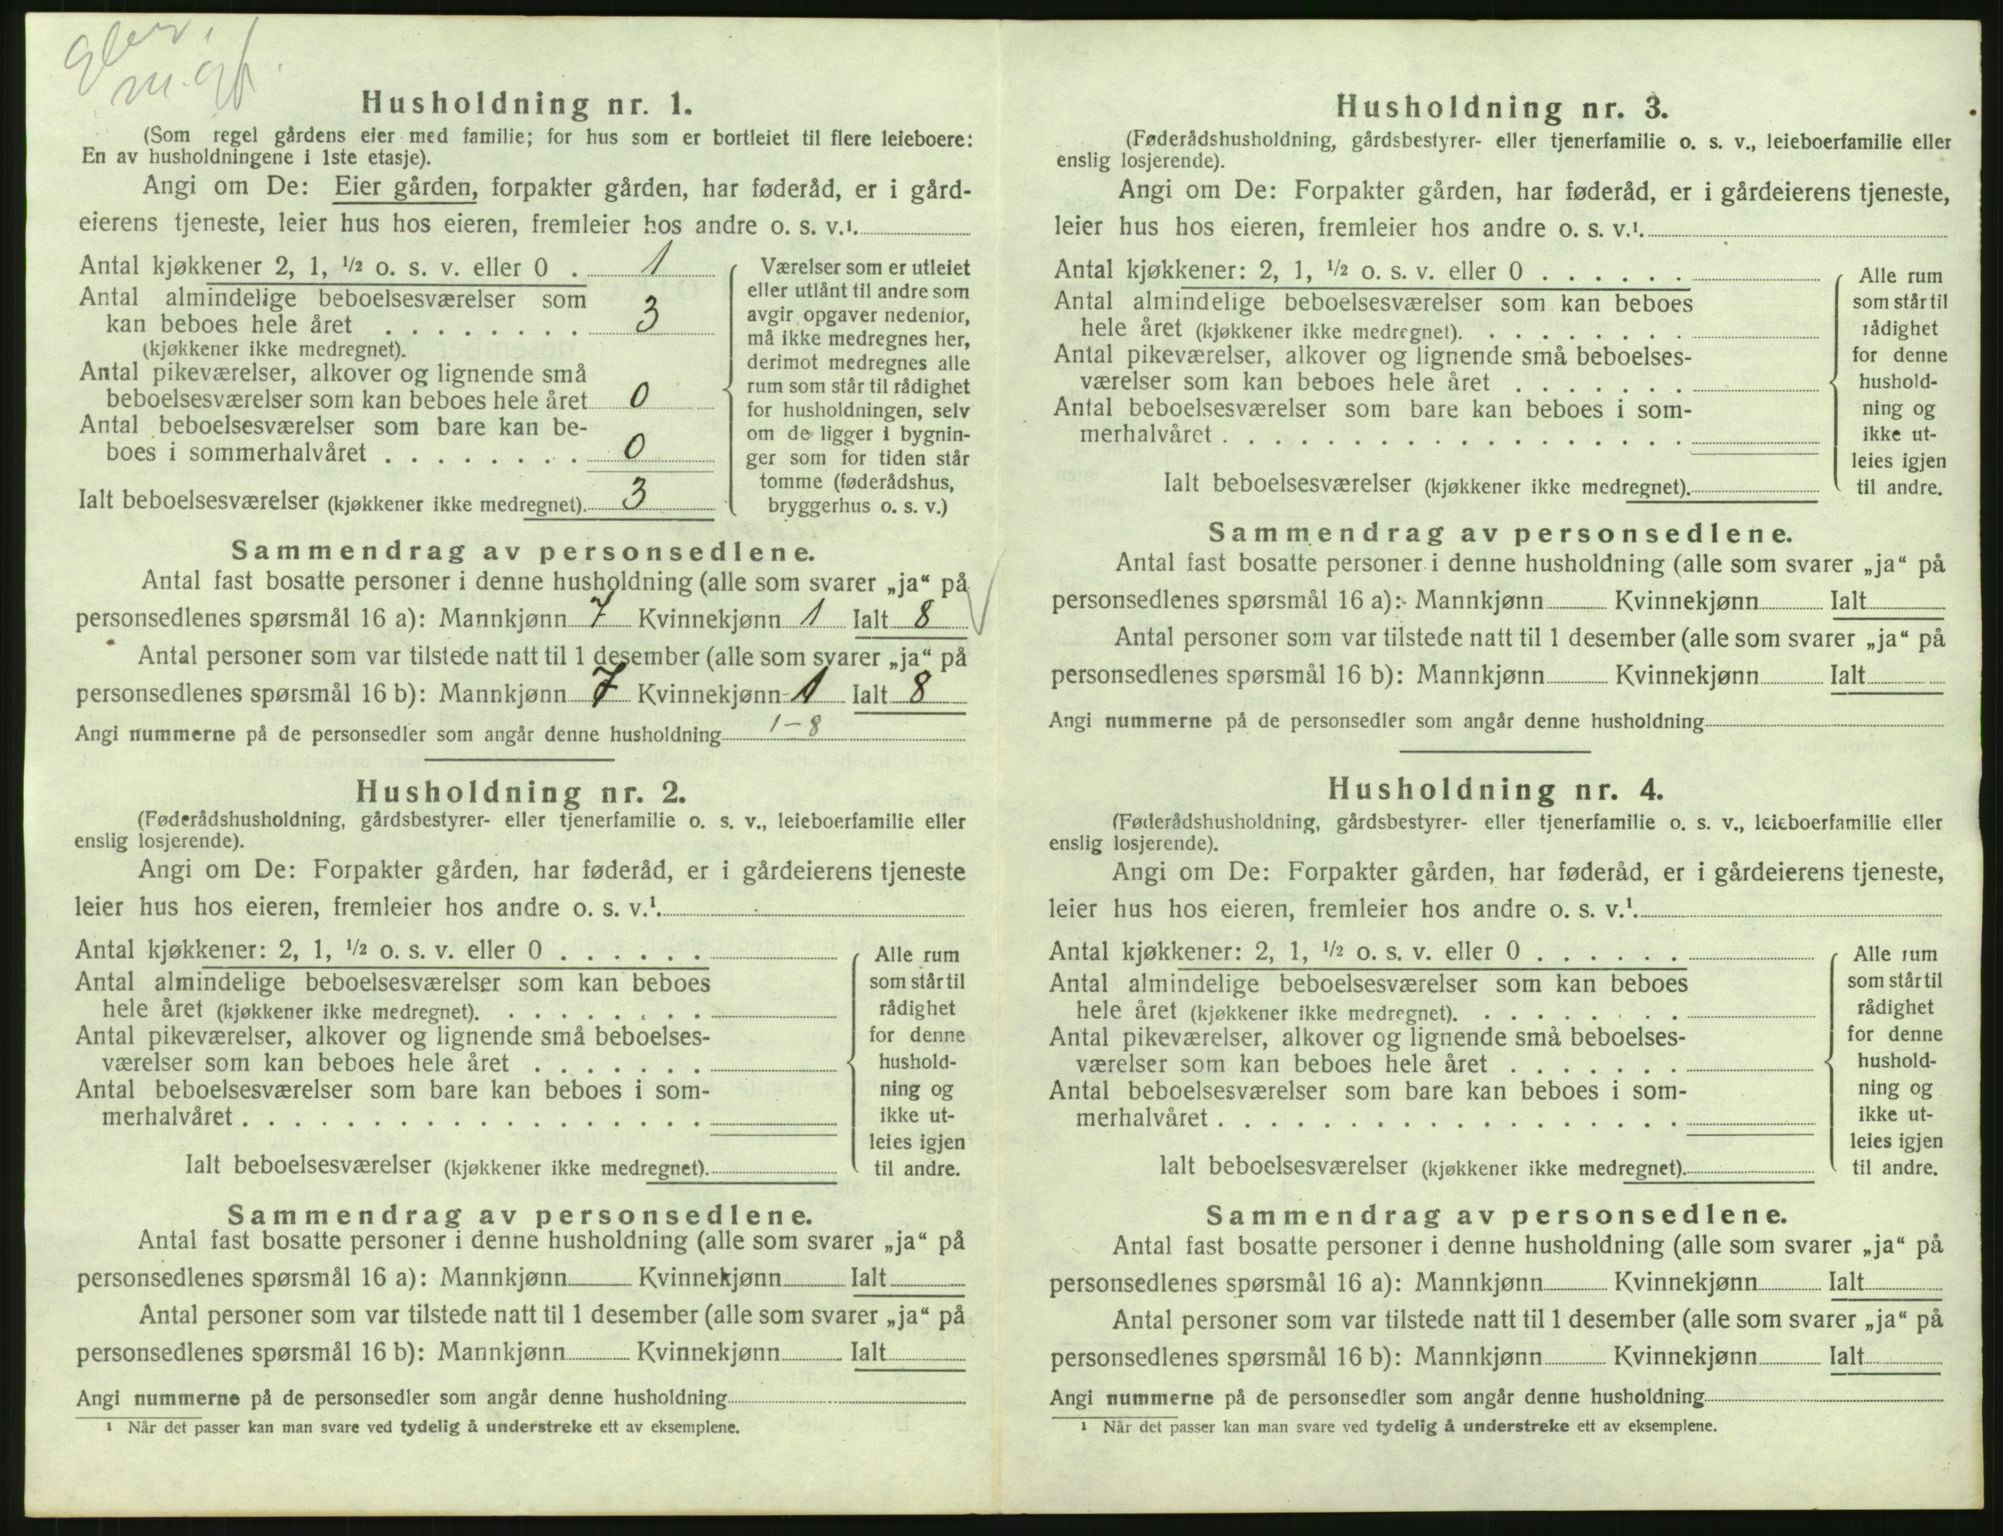 m. gf.
Husholdning nr. 1.
(Som regel gårdens eier med familie; for hus som er bortleiet til flere leieboere:
En av husholdningene i 1ste etasje).
Angi om De: Eier gården, forpakter gården, har føderåd, er i gård-
eierens tjeneste, leier hus hos eieren, fremleier hos andre o. s. v.¹
Antal kjøkkener 2, 1, ½ o. s. v. eller 0 . 1
Antal almindelige beboelsesværelser som
kan beboes hele året . . . . . . . . 3
(kjøkkener ikke medregnet).
Antal pikeværelser, alkover og lignende små
beboelsesværelser som kan beboes hele året 0
Antal beboelsesværelser som bare kan be-
boes i sommerhalvåret . . . . . . . . 0
Ialt beboelsesværelser (kjøkkener ikke medregnet). 3
Værelser som er utleiet
eller utlånt til andre som
avgir opgaver nedenfor,
må ikke medregnes her,
derimot medregnes alle
rum som står til rådighet
for husholdningen, selv
om de ligger i bygnin-
ger som for tiden står
tomme (føderådshus,
bryggerhus o. s. v.)
Sammendrag av personsedlene.
Antal fast bosatte personer i denne husholdning (alle som svarer „ja“ på
personsedlenes spørsmål 16 a): Mannkjønn 7 Kvinnekjønn 1 Ialt 8
Antal personer som var tilstede natt til 1 desember (alle som svarer „ja“ på
personsedlenes spørsmål 16 b): Mannkjønn 7 Kvinnekjønn 1 Ialt 8
Angi nummerne på de personsedler som angår denne husholdning 1-8
Husholdning nr. 2.
(Føderådshusholdning, gårdsbestyrer- eller tjenerfamilie o. s. v., leieboerfamilie eller
enslig losjerende).
Angi om De: Forpakter gården, har føderåd, er i gårdeierens tjeneste
leier hus hos eieren, fremleier hos andre o. s. v.¹.
Antal kjøkkener: 2, 1, ½ o. s. v. eller 0 . . . . . .
Antal almindelige beboelsesværelser som kan beboes
hele året (kjøkkener ikke medregnet). . . . . . . . .
Antal pikeværelser, alkover og lignende små beboelses-
værelser som kan beboes hele året . . . . . . .
Antal beboelsesværelser som bare kan beboes i som-
merhalvåret . . . . . . . . . . . . . . . . . .
Ialt beboelsesværelser (kjøkkener ikke medregnet).
Alle rum
som står til
rådighet
for denne
hushold-
ning og
ikke ut-
leies igjen
til andre.
Sammendrag av personsedlene.
Antal fast bosatte personer i denne husholdning (alle som svarer „ja“ på
personsedlenes spørsmål 16 a): Mannkjønn Kvinnekjønn Ialt
Antal personer som var tilstede natt til 1 desember (alle som svarer „ja“ på
personsedlenes spørsmål 16 b): Mannkjønn Kvinnekjønn Ialt
Angi nummerne på de personsedler som angår denne husholdning
¹ Når det passer kan man svare ved tydelig å understreke ett av eksemplene.
Husholdning nr. 3.
(Føderådshusholdning, gårdsbestyrer- eller tjenerfamilie o. s. v., leieboerfamilie eller
enslig losjerende).
Angi om De: Forpakter gården, har føderåd, er i gårdeierens tjeneste,
leier hus hos eieren, fremleier hos andre o. s. v.¹.
Antal kjøkkener: 2, 1, ½ o. s. v. eller 0 . . . . . .
Antal almindelige beboelsesværelser som kan beboes
hele året (kjøkkener ikke medregnet). . . . . . . . .
Antal pikeværelser, alkover og lignende små beboelses-
værelser som kan beboes hele året . . . . . . .
Antal beboelsesværelser som bare kan beboes i som-
merhalvåret . . . . . . . . . . . . . . . . . .
Ialt beboelsesværelser (kjøkkener ikke medregnet).
Alle rum
som står til
rådighet
for denne
hushold-
ning og
ikke ut-
leies igjen
til andre.
Sammendrag av personsedlene.
Antal fast bosatte personer i denne husholdning (alle som svarer „ja“ på
personsedlenes spørsmål 16 a): Mannkjønn Kvinnekjønn Ialt
Antal personer som var tilstede natt til 1 desember (alle som svarer „ja“ på
personsedlenes spørsmål 16 b): Mannkjønn Kvinnekjønn Ialt
Angi nummerne på de personsedler som angår denne husholdning
Husholdning nr. 4.
(Føderådshusholdning, gårdsbestyrer- eller tjenerfamilie o. s. v., leieboerfamilie eller
enslig losjerende).
Angi om De: Forpakter gården, har føderåd, er i gårdeierens tjeneste,
leier hus hos eieren, fremleier hos andre o. s. v.¹.
Antal kjøkkener: 2, 1, ½ o. s. v. eller 0 . . . . . .
Antal almindelige beboelsesværelser som kan beboes
hele året (kjøkkener ikke medregnet). . . . . . . . .
Antal pikeværelser, alkover og lignende små beboelses-
værelser som kan beboes hele året . . . . . . .
Antal beboelsesværelser som bare kan beboes i som-
merhalvåret . . . . . . . . . . . . . . . . . .
Ialt beboelsesværelser (kjøkkener ikke medregnet).
Alle rum
som står til
rådighet
for denne
hushold-
ning og
ikke ut-
leies igjen
til andre.
Sammendrag av personsedlene.
Antal fast bosatte personer i denne husholdning (alle som svarer „ja“ på
personsedlenes spørsmål 16 a): Mannkjønn Kvinnekjønn Ialt
Antal personer som var tilstede natt til 1 desember (alle som svarer „ja“ på
personsedlenes spørsmål 16 b): Mannkjønn Kvinnekjønn Ialt
Angi nummerne på de personsedler som angår denne husholdning
¹ Når det passer kan man svare ved tydelig å understreke ett av eksemplene.